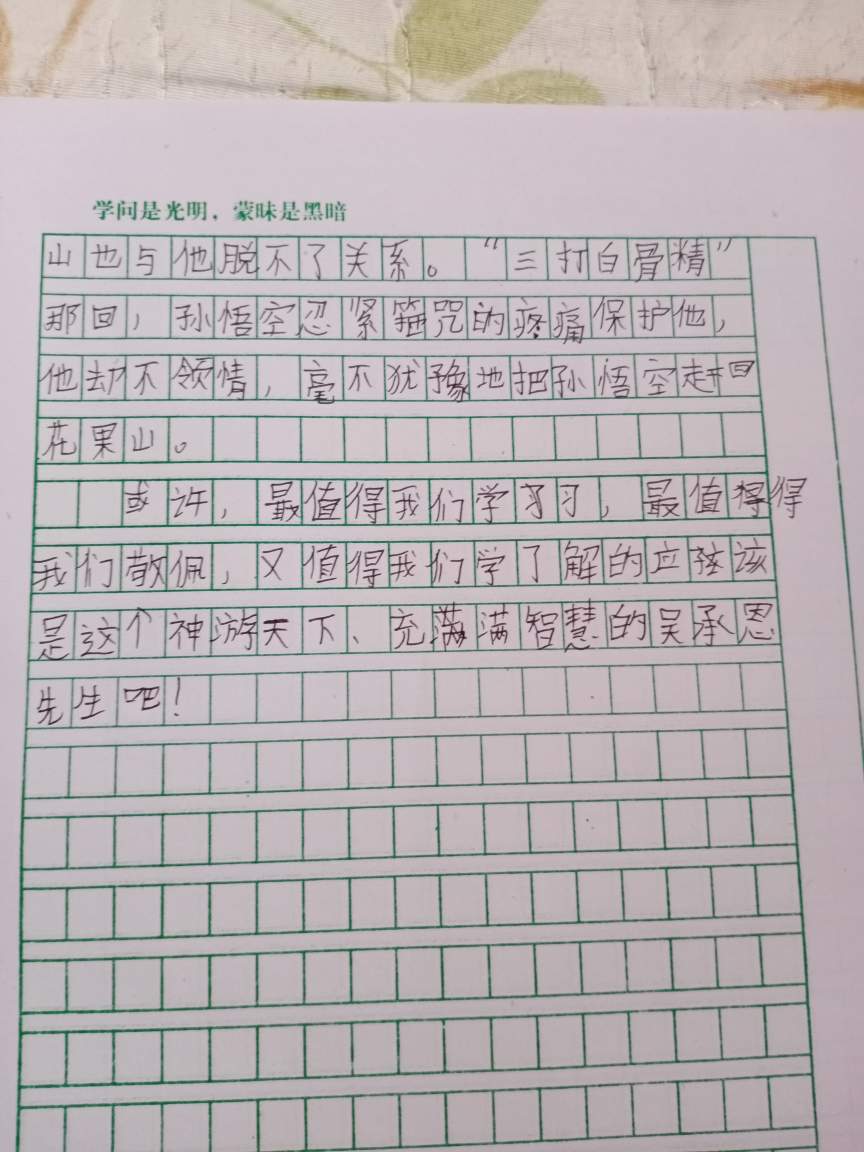 学问是光明，蒙昧是黑暗
山也与他脱不了关系。“三打白骨精”
那回，孙悟空忍紧箍咒的疼痛保护他，
他却不领情，毫不犹豫地把孙悟空赶回
花果山。
或许，最值得我们学习，最值得
我们敬佩，又值得我们学了解的应该
是这个神游天下、充满智慧的吴承恩
先生吧！